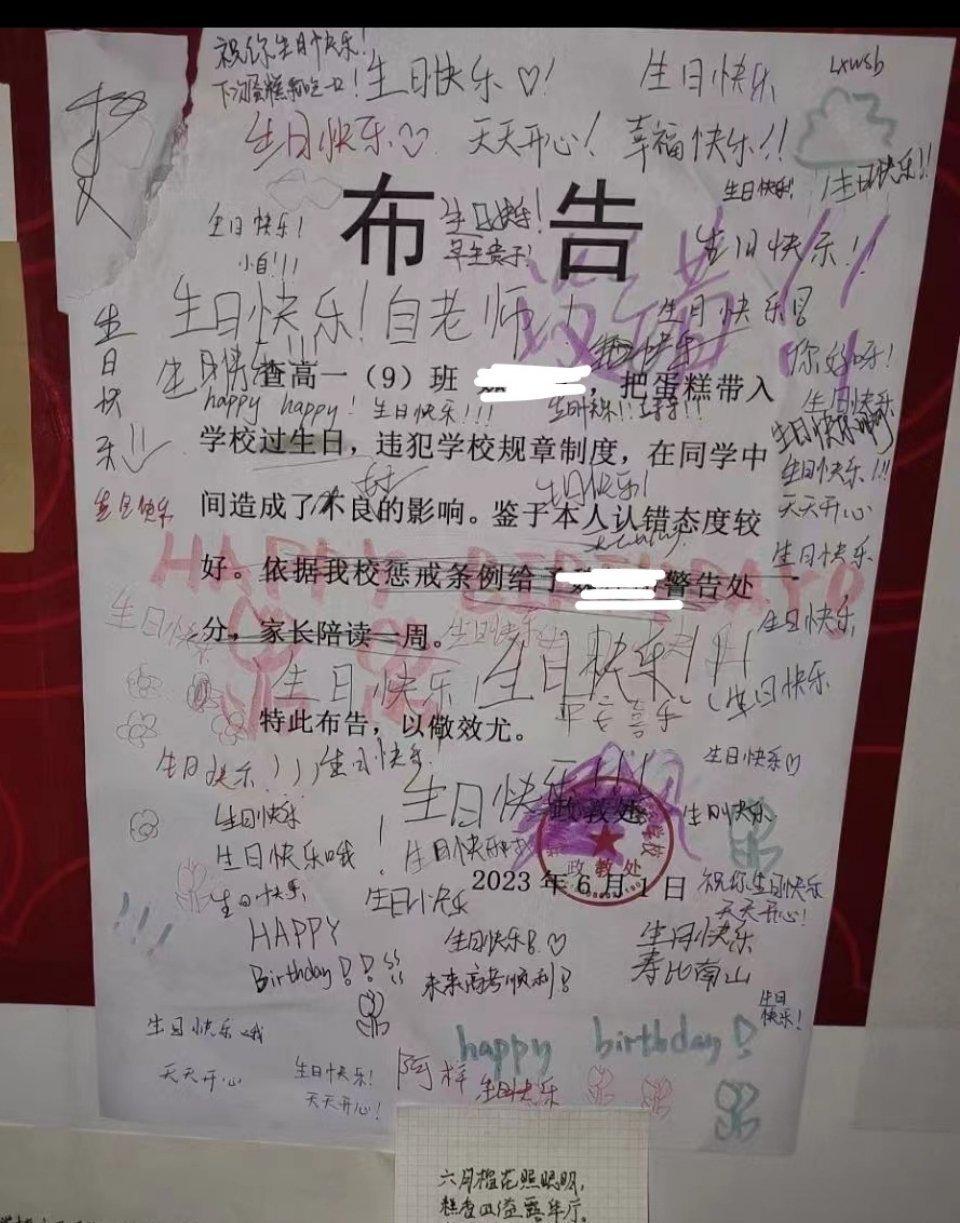 祝你生日快乐!
下次蛋糕我吃一口!
生日快乐♡!
生日快乐
Lxwsb
生日快乐♡
天天开心!
幸福快乐!!
生日快乐!
生日快乐!!
布告
生日快乐!
早生贵子!
生日快乐!
小白!!!
生日快乐!!
生日快乐!白老师!
生日快乐
你好呀!
生日快乐!!
查高一（9）班 ，把蛋糕带入
happy happy! 生日快乐!!!
生日快乐
学校过生日，违犯学校规章制度，在同学中
生日快乐!!!
天天开心
间造成了不良的影响。鉴于本人认错态度较
生日快乐!
生日快乐
HAPPY BIRTHDAY
好。依据我校惩戒条例给予 警告处
生日快乐
分，家长陪读一周。
生日快乐
生日快乐
生日快乐!!!
平安喜乐
生日快乐
特此布告，以儆效尤。
生日快乐!
生日快乐
生日快乐♡
生日快乐!!!
政教处
生日快乐
生日快乐
生日快乐哦
政教处
2023 年 6 月 1 日
祝你生日快乐
天天开心!
生日快乐
生日快乐
HAPPY
Birthday!!
生日快乐!♡
未来高考顺利!
生日快乐
寿比南山
生日
快乐!
生日快乐哦
天天开心
生日快乐!
天天开心!
happy birthday!
生日快乐
六月榴花照眼明,